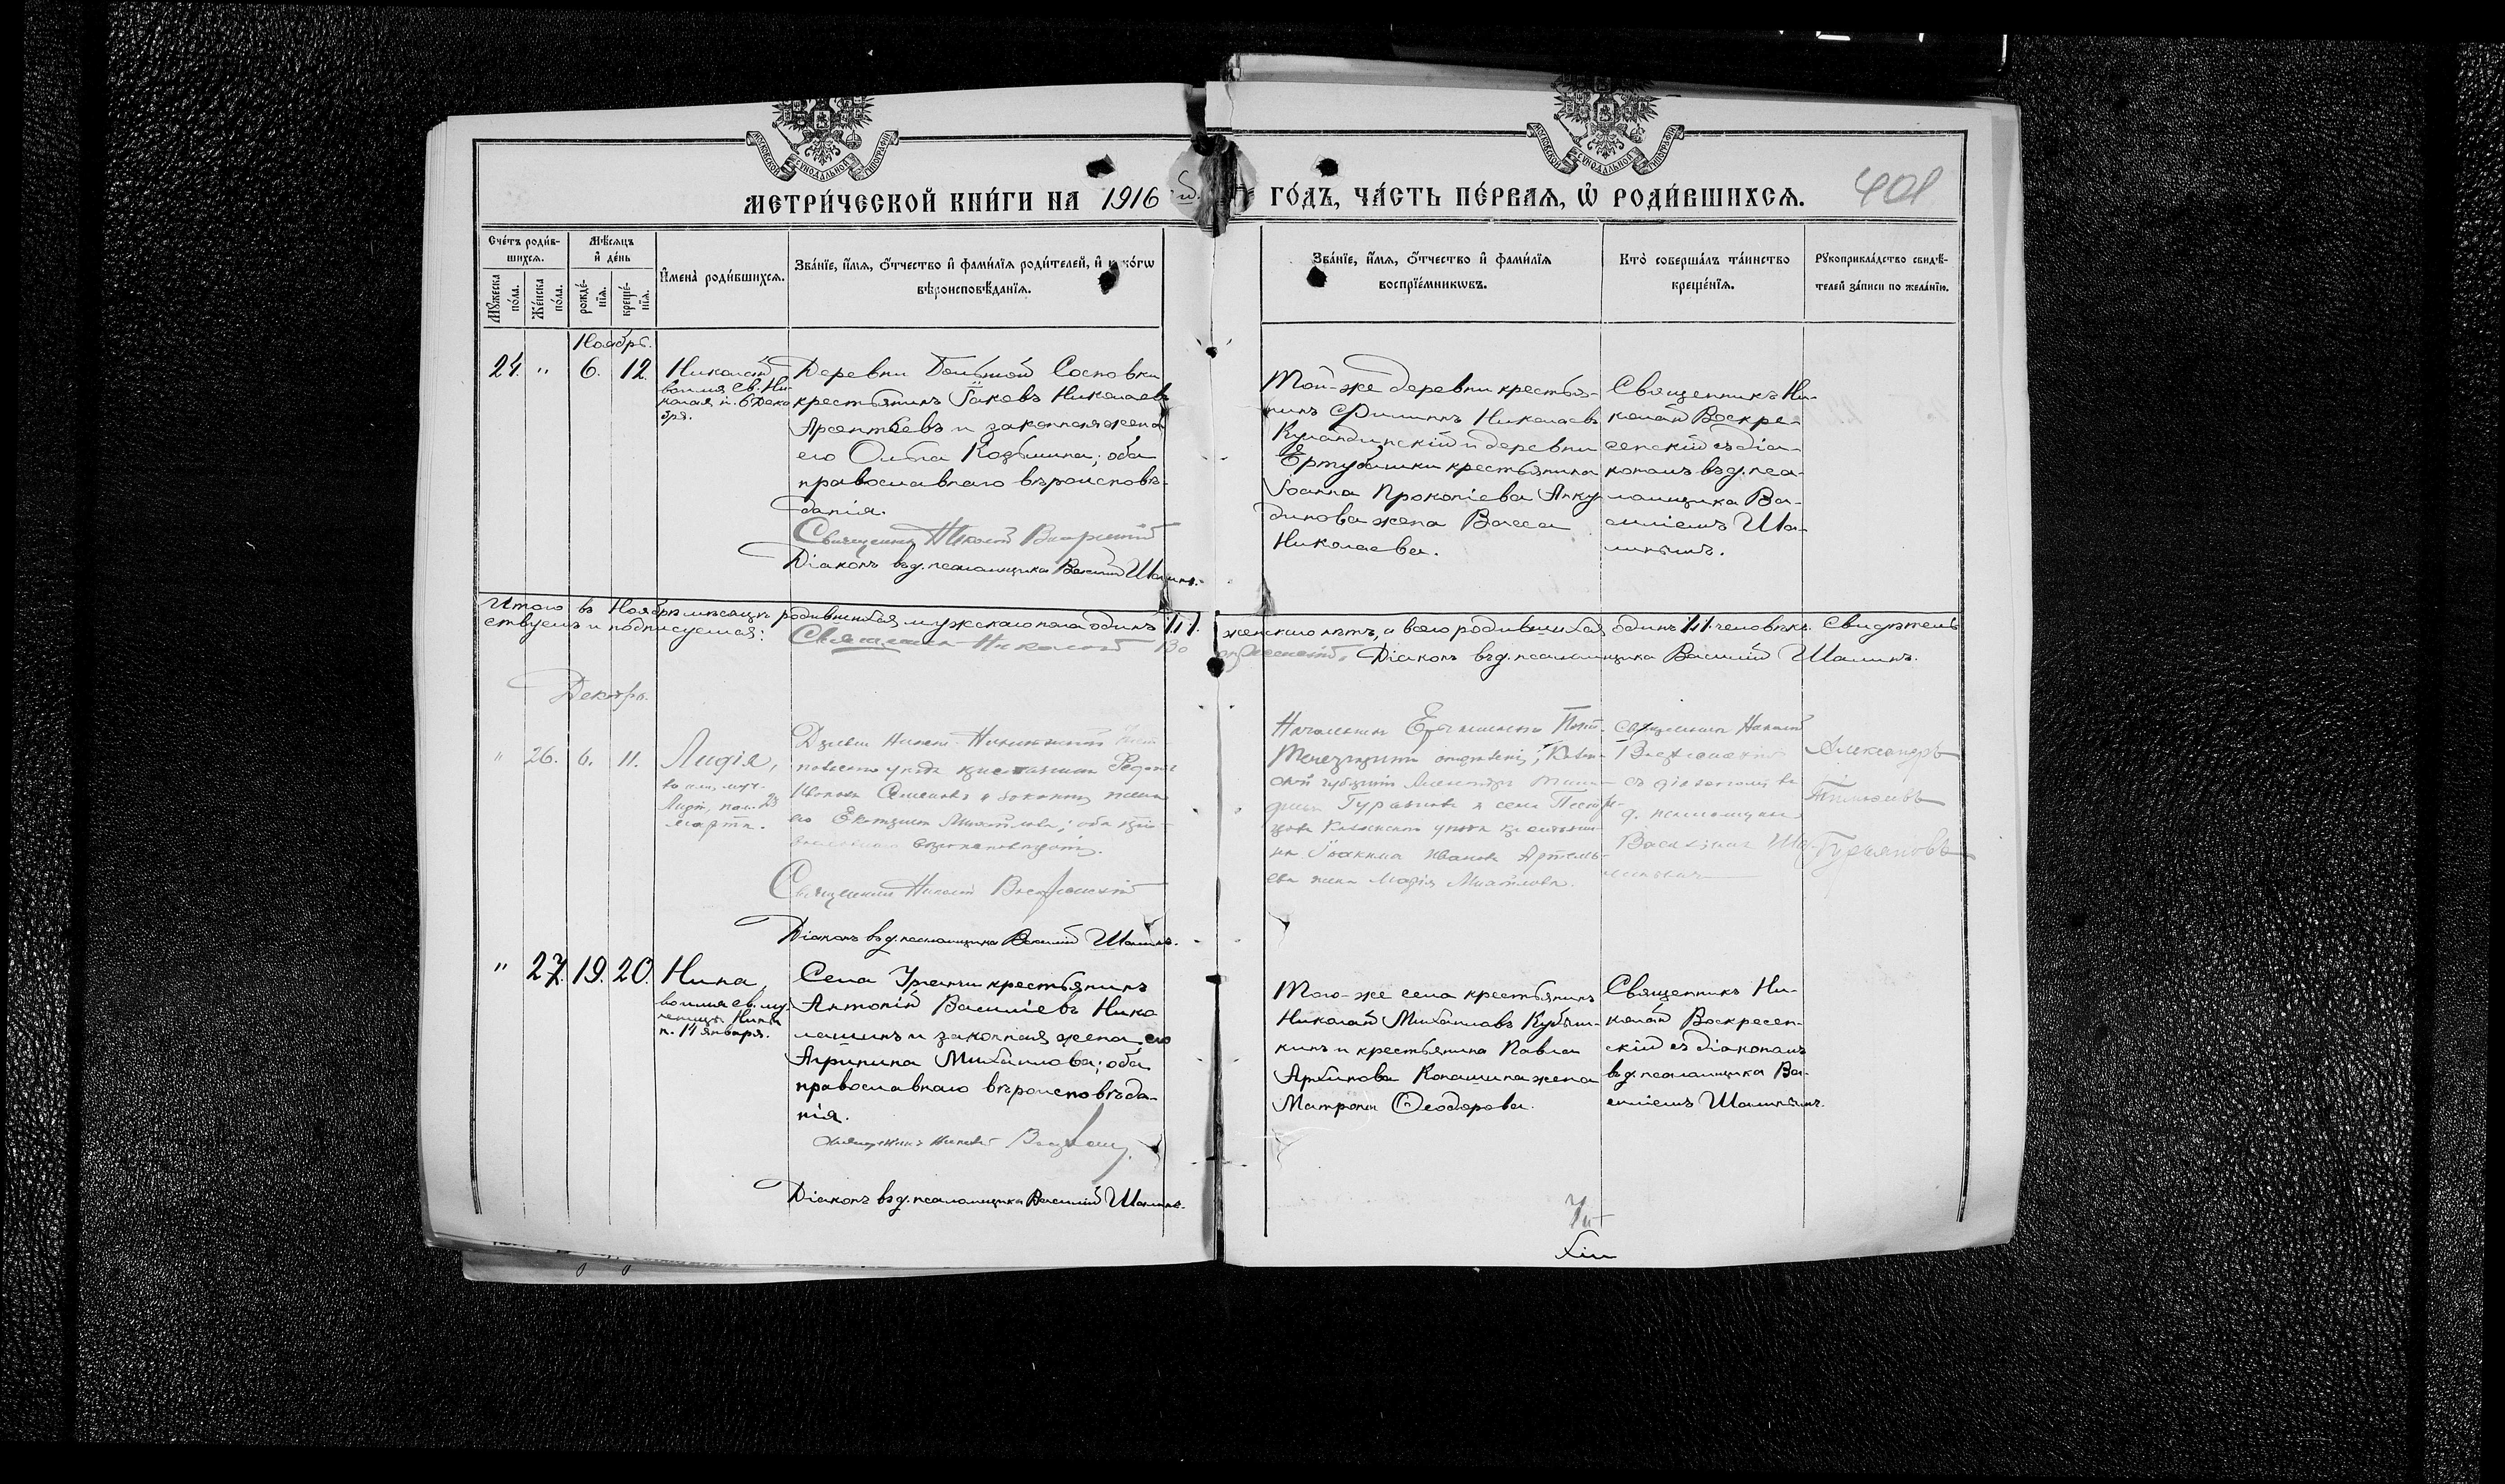 МОСКОВСКОЙ СѴНОДАЛЬНОЙ ТИПОГРАФІИ
МОСКОВСКОЙ СѴНОДАЛЬНОЙ ТИПОГРАФІИ
МЕТРИ́ЧЕСКОЙ КНИ́ГИ НА 1916 ГО́ДЪ, ЧА́СТЬ ПЕ́РВАѦ, Ѽ РОДИ́ВШИХСѦ. 401
Сче́тъ роди́в-
шихсѧ.
Мꙋжеска по́ла.
Же́нска по́ла.
Мѣ́сѧцъ
и҆ де́нь
рожде́-
нїѧ.
креще́-
нїѧ.
И҆мена̀ роди́вшихсѧ.
Зва́нїе, и҆́мѧ, ѻ҆́тчество и҆ фами́лїѧ роди́телей, и҆ како́гѡ
вѣроисповѣ́данїѧ.
Зва́нїе, и҆́мѧ, ѻ҆́тчество и҆ фами́лїѧ
воспрїе́мникѡвъ.
Кто̀ соверша́лъ та́инство
креще́нїѧ.
Рꙋкоприкла́дство свидѣ́-
телей за́писи по жела́нїю.
Ноябрь.
24. " 6. 12.
Николай
во имя св. Ни-
колая п. 6 Дека
бря.
Деревни Большой Сосновки
крестьянинъ Іаковъ Николаевъ
Арсентьевъ и законная жена
его Ольга Козьмина; оба
православнаго вѣроисповѣ-
данія.
Священникъ Николай
Діаконъ в д. псаломщика Василій Шалинъ.
Той-же деревни крестья-
нинъ Филиппъ Николаевъ
и деревни
крестьянина
Іоанна Прокопіева Анку-
динова жена Васса
Николаева.
Священникъ Ни-
колай Воскре-
сенскій съ діа-
кономъ в д. пса-
ломщика Ва-
силіемъ Ша-
линымъ.
Итого въ Ноябрѣ мѣсяцѣ родившихся мужскаго пола одинъ /1/. женскаго нѣтъ, а всего родившихся одинъ /1/ человѣкъ. Свидѣтель
ствуемъ и подписуемся: Священникъ Николай Воскресенскій. Діаконъ в д. псаломщика Василій Шалинъ.
Декабрь.
" 26. 6. 11.
Лидія,
во имя муч.
Лидіи, пам. 23
марта.
крестьянинъ
Семеновъ и законная жена
его Екатерина Михайлова; оба пра-
вославнаго вѣроисповѣданія.
Священникъ Николай Воскресенскій
Діаконъ в д. псаломщика Василій Шалинъ.
Начальникъ
отдѣленія, Казан-
ской губерніи Александръ
Гурьяновъ и села
уѣзда крестьяни-
на Іоакима Иванова Артемь-
ева жена Марія Михайлова.
Священникъ Николай
Воскресенскій
съ діакономъ въ
д. псаломщика
Василіемъ Ша-
линымъ
Александръ
Гурьяновъ
" 27. 19. 20.
Нина,
во имя св. му-
ченицы Нины
п. 14 января.
Села крестьянинъ
Антоній Василіевъ Нико
лашинъ и законная жена его
Агрипина Михаилова; оба
православнаго вѣроисповѣда-
нія.
Священникъ Николай
Діаконъ в д. псаломщика Василій Шалинъ.
Того-же села крестьянинъ
Николай Михаиловъ
кинъ и крестьянина Павла
Архипова жена
Матрона Ѳеодорова.
Священникъ Ни-
колай Воскресен-
скій съ діакономъ
в д. псаломщика Ва-
силіемъ Шалинымъ.